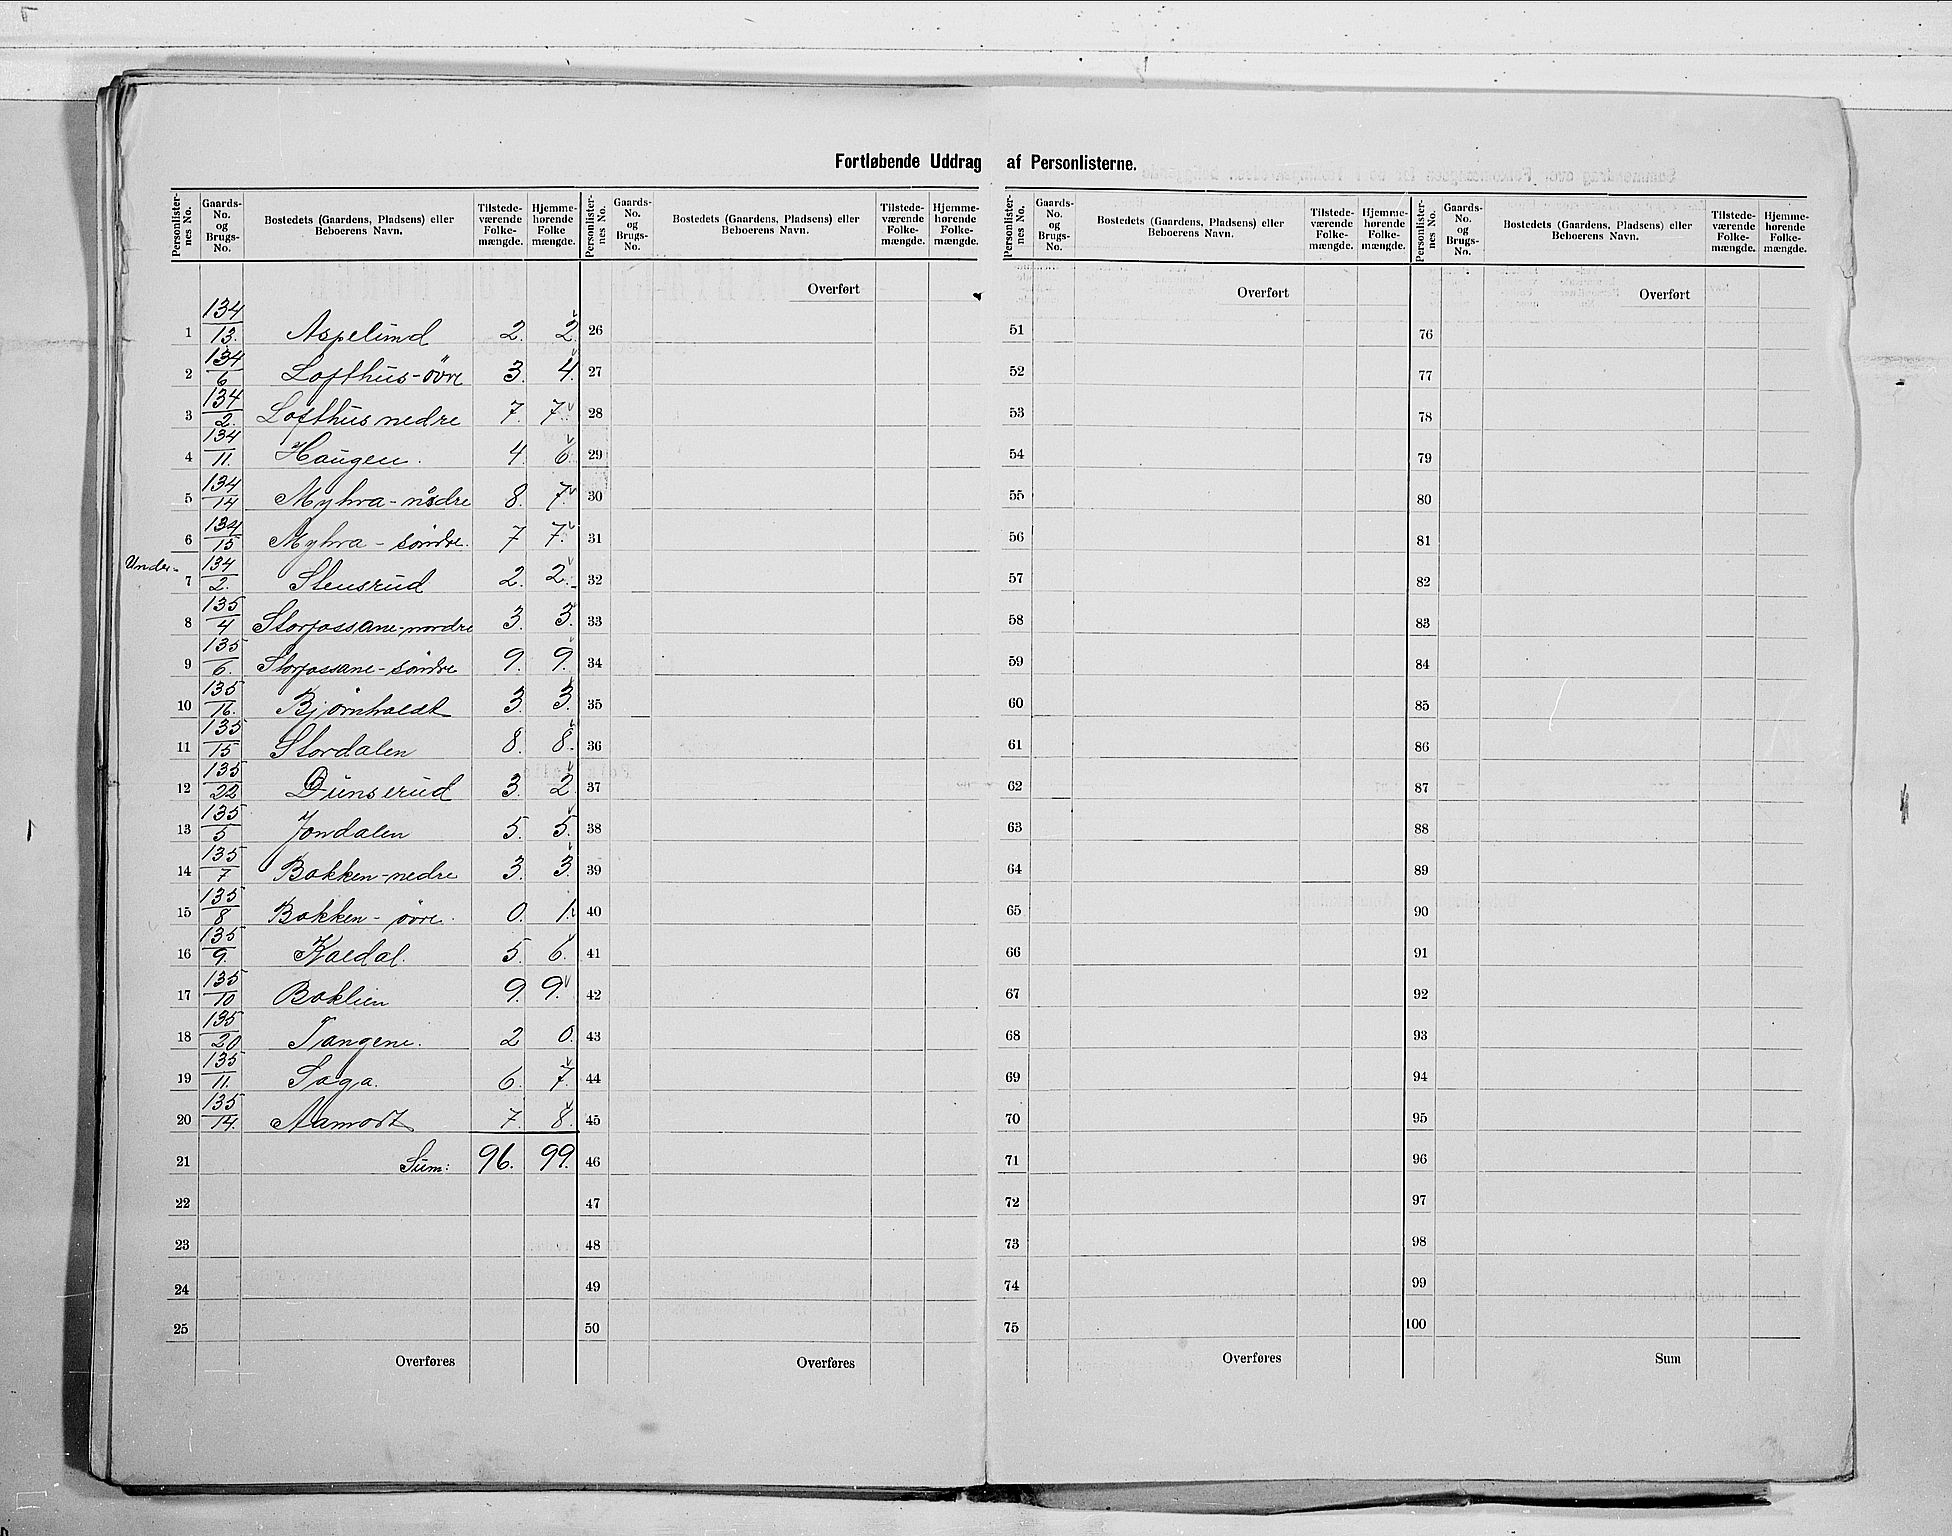 Fortløbende Uddrag af Personlisterne.
Personlister-nes No. Gaards-No. og Brugs-No. Bostedets (Gaardens, Pladsens) eller Beboerens Navn. Tilstede-værende Folke-mængde. Hjemme-hørende Folke mængde.
1 134/13. Aspelund 2. 2
2 134/6 Lofthus-övre 3. 4.
3 134/2. Lofthus nedre 7. 7
4 134/11. Haugen. 4. 6.
5 134/14 Myhra - nördre 8. 7
6 134/15 Myhra - söndre. 7 7.
Under- 7 134/2. Stensrud 2. 2.
8 135/4 Storfossane-nordre 3. 3.
9 135/6. Storfossane-söndre 9. 9.
10 135/16. Bjørnholdt 3. 3.
11 135/15 Stordalen 8. 8.
12 135/22 Dunserud 3. 2
13 135/5 Jondalen 5. 5.
14 135/7 Bakken-nedre 3. 3.
15 135/8 Bakken - övre. 0. 1.
16 135/9. Kaldal. 5. 6.
17 135/10 Baklien 9. 9.
18 135/20 Tangene. 2 0.
19 135/11. Saga. 6. 7.
20 135/14. Aamodt 7. 8.
21 Sum: 96. 99.
22
23
24
25
Overføres
Personlister-nes No. Gaards-No. og Brugs-No. Bostedets (Gaardens, Pladsens) eller Beboerens Navn. Tilstede-værende Folke-mængde. Hjemme-hørende Folke-mængde.
Overført
26
27
28
29
30
31
32
33
34
35
36
37
38
39
40
41
42
43
44
45
46
47
48
49
50
Overføres
Personlister-nes No. Gaards-No. og Brugs-No. Bostedets (Gaardens, Pladsens) eller Beboerens Navn. Tilstede-værende Folke-mængde. Hjemme-hørende Folke-mængde.
Overført
51
52
53
54
55
56
57
58
59
60
61
62
63
64
65
66
67
68
69
70
71
72
73
74
75
Overføres
Personlister-nes No. Gaards-No. og Brugs-No. Bostedets (Gaardens, Pladsens) eller Beboerens Navn. Tilstede-værende Folke-mængde. Hjemme-hørende Folke-mængde.
Overført
76
77
78
79
80
81
82
83
84
85
86
87
88
89
90
91
92
93
94
95
96
97
98
99
100
Sum